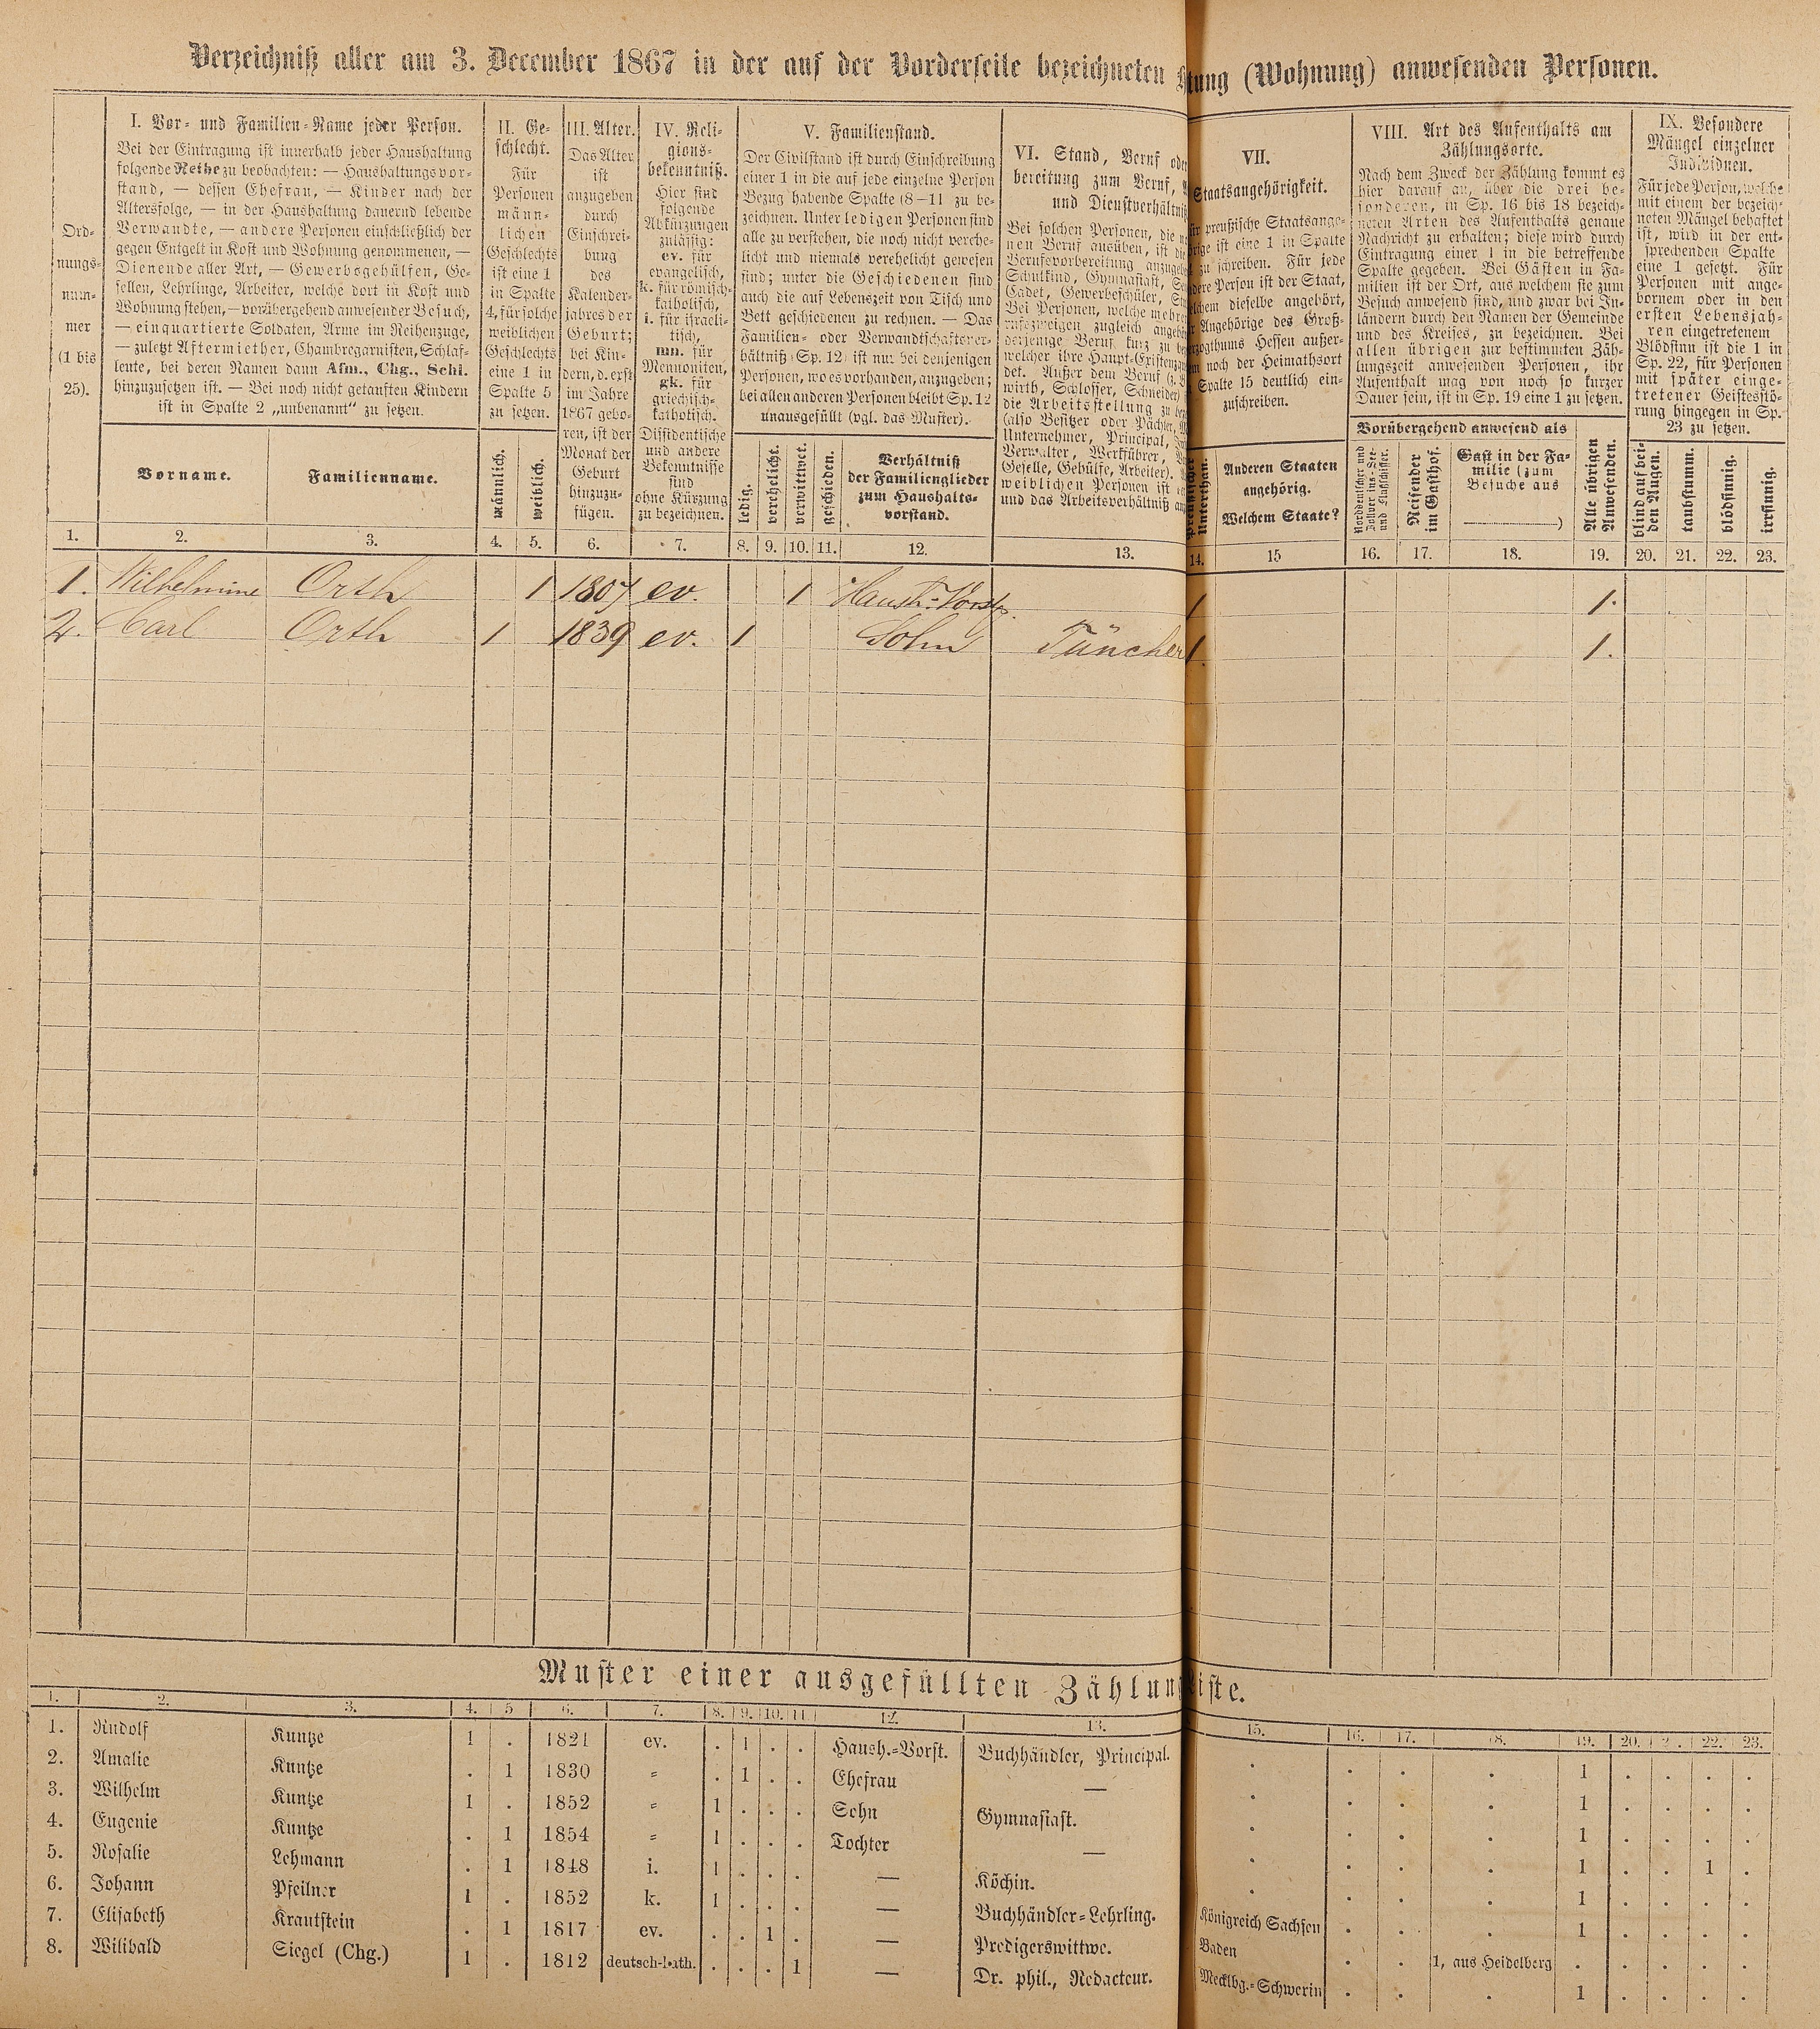 Verzeichniß aller am 3. December 1867 in der auf der Vorderseite bezeichneten tung (Wohnung) anwesenden Personen.
Ord-
nungs-
num-
mer
(1 bis
25).
I. Vor- und Familien-Name jeder Person.
Bei der Eintragung ist innerhalb jeder Haushaltung
folgende Reihe zu beobachten: — Haushaltungsvor-
stand, — dessen Ehefrau, — Kinder nach der
Altersfolge, — in der Haushaltung dauernd lebende
Verwandte, — andere Personen einschließlich der
gegen Entgelt in Kost und Wohnung genommenen, —
Dienende aller Art, — Gewerbsgehülfen, Ge-
sellen, Lehrlinge, Arbeiter, welche dort in Kost und
Wohnung stehen, — vorübergehend anwesender Besuch,
— einquartierte Soldaten, Arme im Reihenzuge,
— zuletzt Aftermiether, Chambregarnisten, Schlaf-
leute, bei deren Namen dann Afm., Chg., Schl.
hinzuzusetzen ist. — Bei noch nicht getauften Kindern
ist in Spalte 2 „unbenannt" zu setzen.
Vorname.
Familienname.
II. Ge-
schlecht.
Für
Personen
männ-
lichen
Geschlechts
ist eine 1
in Spalte
4, für solche
weiblichen
Geschlechts
eine 1 in
Spalte 5
zu setzen.
männlich.
weiblich.
III. Alter.
Das Alter
ist
anzugeben
durch
Einschrei-
bung
des
Kalender-
jahres der
Geburt;
bei Kin-
dern, d. erst
im Jahre
1867 gebo-
ren, ist der
Monat der
Geburt
hinzuzu-
fügen.
IV. Reli-
gions-
bekenntniß.
Hier sind
folgende
Abkürzungen
zulässig:
ev. für
evangelisch,
k. für römisch-
katholisch,
i. für israeli-
tisch,
mn. für
Mennoniten,
gk. für
griechisch-
katholisch.
Dissidentische
und andere
Bekenntnisse
sind
ohne Kürzung
zu bezeichnen.
V. Familienstand.
Der Civilstand ist durch Einschreibung
einer 1 in die auf jede einzelne Person
Bezug habende Spalte (8—11) zu be-
zeichnen. Unter ledigen Personen sind
alle zu verstehen, die noch nicht verehe-
licht und niemals verehelicht gewesen
sind; unter die Geschiedenen sind
auch die auf Lebenszeit von Tisch und
Bett geschiedenen zu rechnen. — Das
Familien- oder Verwandtschaftsver-
hältniß (Sp. 12) ist nur bei denjenigen
Personen, wo es vorhanden, anzugeben;
bei allen anderen Personen bleibt Sp. 12
unausgefüllt (vgl. das Muster).
ledig.
verehelicht.
verwittwet.
geschieden.
Verhältniß
der Familienglieder
zum Haushalts-
vorstand.
VI. Stand, Beruf oder
bereitung zum Beruf,
und Dienstverhältniß
Bei solchen Personen, die
nen Beruf ausüben, ist die
Berufsvorbereitung anzugeben
Schulkind, Gymnasiast,
Cadet, Gewerbeschüler,
Bei Personen, welche mehre
rufszweigen zugleich
derjenige Beruf kurz zu
welcher ihre Haupt-Existenz
det. Außer dem Beruf (z. B.
wirth, Schlosser, Schneider)
die Arbeitsstellung zu
(also Besitzer oder Pächter,
Unternehmer, Principal,
Verwalter, Werkführer,
Geselle, Gehülfe, Arbeiter).
weiblichen Personen ist
und das Arbeitsverhältniß
VII.
Staatsangehörigkeit.
preußische Staatsange-
rige ist eine 1 in Spalte
zu schreiben. Für jede
dere Person ist der Staat,
chem dieselbe angehört,
Angehörige des Groß-
zogthums Hessen außer-
noch der Heimathsort
Spalte 15 deutlich ein-
zuschreiben.
Unterthan.
Anderen Staaten
angehörig.
Welchem Staate?
VIII. Art des Aufenthalts am
Zählungsorte.
Nach dem Zweck der Zählung kommt es
hier darauf an, über die drei be-
sonderen, in Sp. 16 bis 18 bezeich-
neten Arten des Aufenthalts genaue
Nachricht zu erhalten; diese wird durch
Eintragung einer 1 in die betreffende
Spalte gegeben. Bei Gästen in Fa-
milien ist der Ort, aus welchem sie zum
Besuch anwesend sind, und zwar bei In-
ländern durch den Namen der Gemeinde
und des Kreises, zu bezeichnen. Bei
allen übrigen zur bestimmten Zäh-
lungszeit anwesenden Personen, ihr
Aufenthalt mag von noch so kurzer
Dauer sein, ist in Sp. 19 eine 1 zu setzen.
Vorübergehend anwesend als
Norddeutscher und
Zollver ins See-
und Flußschiffer.
Reisender
im Gasthof.
Gast in der Fa-
milie (zum
Besuche aus
)
Alle übrigen
Anwesenden.
IX. Besondere
Mängel einzelner
Individuen.
Für jede Person, welche
mit einem der bezeich-
neten Mängel behaftet
ist, wird in der ent-
sprechenden Spalte
eine 1 gesetzt. Für
Personen mit ange-
bornem oder in den
ersten Lebensjah-
ren eingetretenem
Blödsinn ist die 1 in
Sp. 22, für Personen
mit später einge-
tretener Geistesstö-
rung hingegen in Sp.
23 zu setzen.
blind auf bei-
den Augen.
taubstumm.
blödsinnig.
irrsinnig.
1. 2. 3. 4. 5. 6. 7. 8. 9. 10. 11. 12. 13. 14. 15 16. 17. 18. 19. 20. 21. 22. 23.
1. Wilhelmine Orth 1 1807 ev. 1 Haush.-Vorst. 1 1.
2. Carl Orth 1 1839 ev. 1 Sohn Tüncher 1. 1.
Muster einer ausgefüllten Zählungsliste.
1. 2. 3. 4. 5 6. 7. 8. 9. 10. 11. 12. 13. 15. 16. 17. 18. 19. 20. 2. 22. 23.
1. Rudolf Kuntze 1 . 1821 ev. . 1 . . Haush.-Vorst. Buchhändler, Principal. . . . . 1 . . . .
2. Amalie Kuntze . 1 1830 = . 1 . . Ehefrau — . . . . 1 . . . .
3. Wilhelm Kuntze 1 . 1852 = 1 . . . Sohn Gymnasiast. . . . . 1 . . . .
4. Eugenie Kuntze . 1 1854 = 1 . . . Tochter — . . . . 1 . . 1 .
5. Rosalie Lehmann . 1 1848 i. 1 . . . — Köchin. . . . . 1 . . . .
6. Johann Pfeilner 1 . 1852 k. 1 . . . — Buchhändler-Lehrling. Königreich Sachsen . . . 1 . . . .
7. Elisabeth Krautstein . 1 1817 ev. . . 1 . — Predigerswittwe. Baden . . 1, aus Heidelberg . . . . .
8. Wilibald Siegel (Chg.) 1 . 1812 deutsch-kath. . . . 1 — Dr. phil., Redacteur. Mecklbg.-Schwerin . . . 1 . . . .